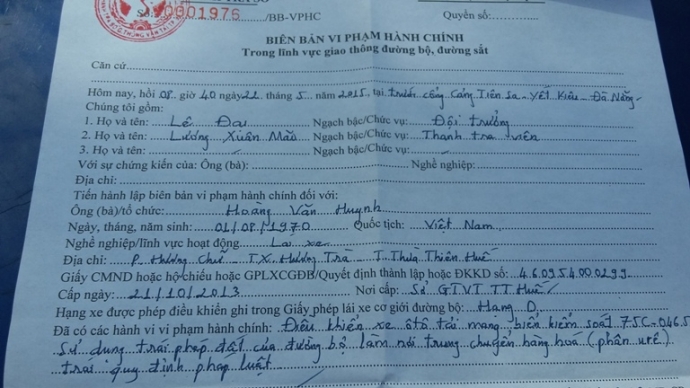 Số: 0001976 /BB-VPHC Quyển số:
BIÊN BẢN VI PHẠM HÀNH CHÍNH
Trong lĩnh vực giao thông đường bộ, đường sắt
Căn cứ
Hôm nay, hồi 08 giờ 40 ngày 22 tháng 5 năm 2015, tại trước cổng Cảng Tiên Sa - Yết Kiêu - Đà Nẵng
Chúng tôi gồm:
1. Họ và tên: Lê Đại Ngạch bậc/Chức vụ: Đội trưởng
2. Họ và tên: Lương Xuân Mão Ngạch bậc/Chức vụ: Thanh tra viên
3. Họ và tên: Ngạch bậc/Chức vụ:
Với sự chứng kiến của: Ông (bà): Nghề nghiệp:
Địa chỉ:
Tiến hành lập biên bản vi phạm hành chính đối với:
Ông (bà)/tổ chức: Hoàng Văn Huynh
Ngày, tháng, năm sinh: 01/08/1970 Quốc tịch: Việt Nam
Nghề nghiệp/lĩnh vực hoạt động Lái xe
Địa chỉ: P. Hương Chữ T.X. Hương Trà T. Thừa Thiên Huế
Giấy CMND hoặc hộ chiếu hoặc GPLXCGĐB/Quyết định thành lập hoặc ĐKKD số: 460954000299
Cấp ngày: 21/10/2013 Nơi cấp: Sở GTVT TT Huế
Hạng xe được phép điều khiển ghi trong Giấy phép lái xe cơ giới đường bộ: Hạng D
Đã có các hành vi vi phạm hành chính: Điều khiển xe ôtô tải mang biển kiểm soát 75C-0465
Sử dụng trái phép đất của đường bộ làm nơi trung chuyển hàng hoá (phân urê)
trái quy định pháp luật